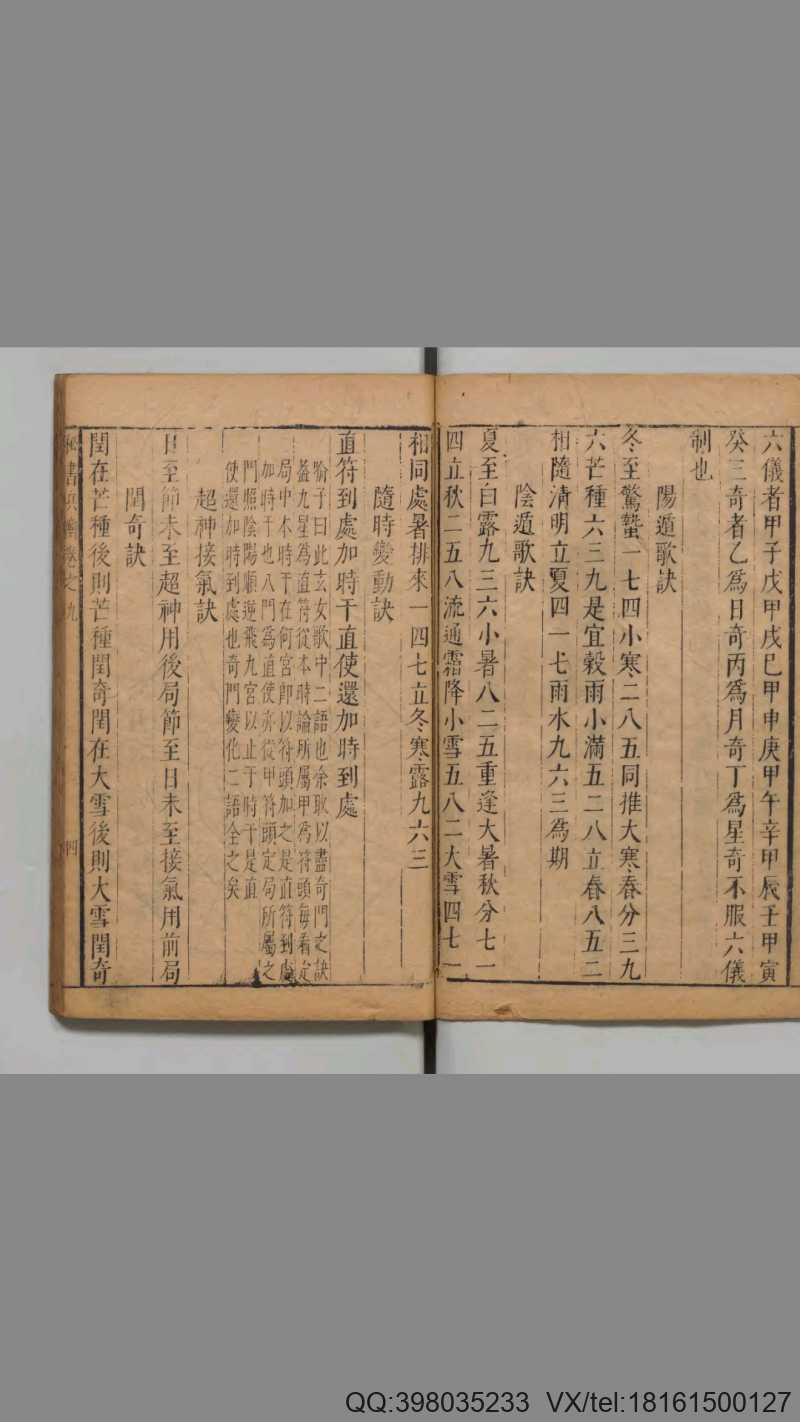 六儀者甲子戊甲戌己甲申庚甲午辛甲辰壬甲寅
癸三奇者乙為日奇丙為月奇丁為星奇不服六儀
制也
陽遁歌訣
冬至驚蟄一七四小寒二八五同推大寒春分三九
六芒種六三九是宜穀雨小滿五二八立春八五二
相隨清明立夏四一七雨水九六三為期
陰遁歌訣
夏至白露九三六小暑八二五重逢大暑秋分七一
四立秋二五八流通霜降小雪五八二大雪四七一
相同處暑排來一四七立冬寒露九六三
隨時變動訣
直符到處加時干直使還加時到處
喻子曰此玄女歌中二語也余取以盡奇門之訣
蓋九星為直符從本時論所屬甲為符頭每看定
局中本時干在何宮即以符頭加之是直符到處
加時干也八門為直使亦從甲符頭定局所屬之
門照陰陽順逆飛九宮以止于時干是直
使還加時到處也奇門變化二語全之矣
超神接氣訣
日至節未至超神用後局節至日未至接氣用前局
閏奇訣
閏在芒種後則芒種閏奇閏在大雪後則大雪閏奇
書兵 卷之九
四
QQ:398035233 VX/tel:18161500127